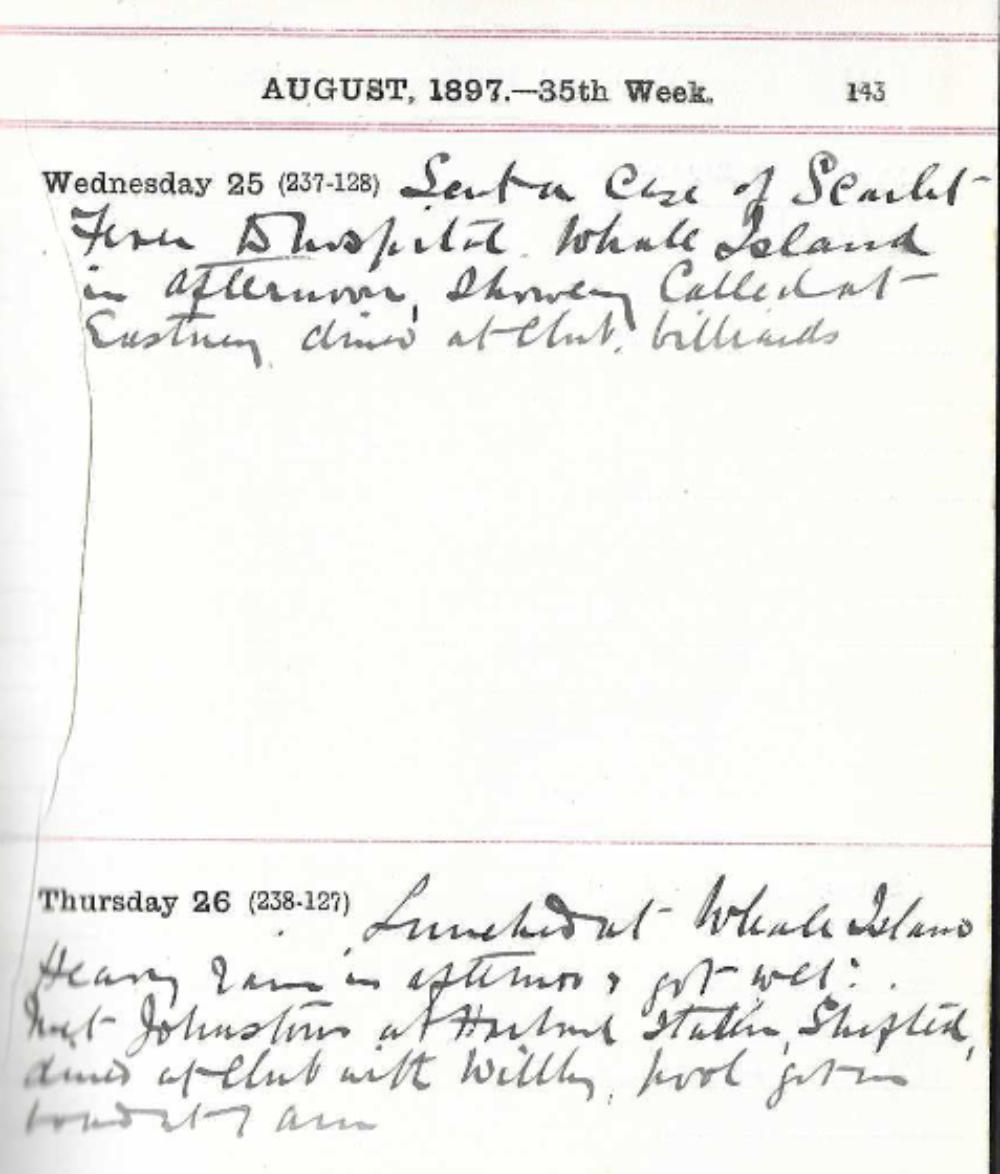 AUGUST, 1897.—35th Week. 143
Wednesday 25 (237-128) Sent a Case of Scarlet
Fever to hospital. Whale Island
in afternoon, Showery Called at
Eastney, dined at Club, billiards
Thursday 26 (238-127) Lunched at Whale Island
Heavy rain in afternoon & got wet.
Met Johnstons at Harbour Station, Shifted,
dined at Club with , pool got on
board at 7 am